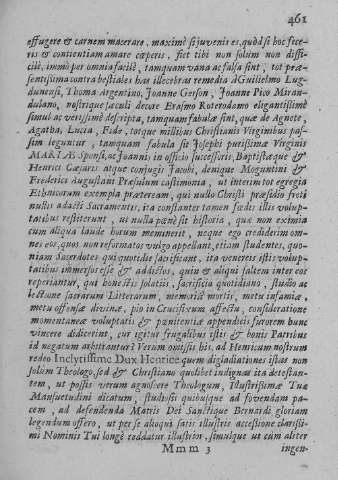 461
effugere & carnem macerare, maximè si juvenis es, quòd si hoc fice-
ris & continentiam amare cœperis, fiet tibi non solùm non diffi-
cile, immò per omnia facile, tamquam vana ac falsa sint, tot præ-
sentissima contra bestiales has illecebras remedia à Guilielmo Lug-
dunensi, Thoma Argentino, Joanne Gerson, Joanne Pico Miran-
dulano, nostrique sæculi decore Erasmo Roterodamo elegantissimè
simul ac verissimè descripta, tamquam fabulæ sint, quæ de Agnete,
Agatha, Lucia, Fide, torque millibus Christianis Virginibus pas-
sim leguntur, tamquam fabula sit Josephi purissimæ Virginis
MARIÆ Sponsi, ac Joannis in officio successoris, Baptistæque &
Henrici Cæsaris atque conjugis Jacobi, denique Moguntini &
Frederici Augustani Præsulum castimonia, ut interim tot egregia
Ethnicorum exempla præteream, qui nullo Christi præsidio freti
nullis adacti Sacramentis, ita constanter tamen fœdis istis volup-
tatibus restiterunt, ut nulla pœnè sit historia, quæ non eximia
cum aliqua laude horum meminerit, neque ego crediderim om-
nes eos, quos non reformatos vulgo appellant, etiam studentes, quo-
niam Sacerdotes qui quotidie sacrificant, ita venereis istis volup-
tatibus immersos esse & addictos, quin & aliqui saltem inter eos
reperiantur, qui honestis solatiis, sacrificio quotidiano, studio ac
lectione sacrarum Litterarum, memoriâ mortis, metu infamiæ,
metu offensæ divinæ, pio in Crucifixum affectu, consideratione
momentaneæ voluptatis & pœnitentiæ appendicis furorem hunc
vincere didicerint, cur igitur frugalibus istis & bonis Patribus
id negatum arbitrantur? Verùm omissis his, ad Henricum nostrum
redeo Inclytissime Dux Henrice quem digladiationes istas non
solùm Theologo, sed & Christiano quolibet indignas ita detestan-
tem, ut possis verum agnoscere Theologum, Illustrissimæ Tuæ
Mansuetudini dicatum, studiosis quibusque ad fovendam pa-
cem, ad defendenda Matris Dei Sanctique Bernardi gloriam
legendum offero, ut per se alioqui satis illustris accessione clarissi-
mi Nominis Tui longè reddatur illustrior, simulque ut cùm aliter
Mmm 3
ingen-